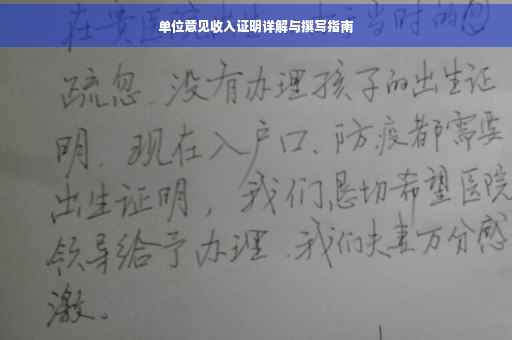 单位意见收入证明详解与撰写指南
在贵医院出生，当时的
疏忽、没有办理孩子的出生证
明．现在入户口、防疫都需要
出生证明，我们恳切希望医院
领导给予办理．我们夫妻万分感
激。